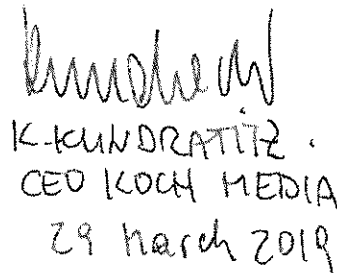 K. KUNDRATITZ.
CEO KOCH MEDIA
29 March 2019